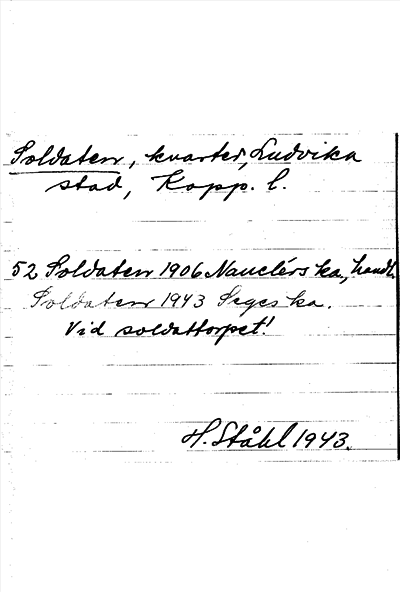 Soldaten, kvarter, Ludvika
stad, Kopp. l.
52 Soldaten 1906 Nauclérs ka, handl.
Soldaten 1943 Seges ka.
Vid soldattorpet!
H. Ståhl 1943.